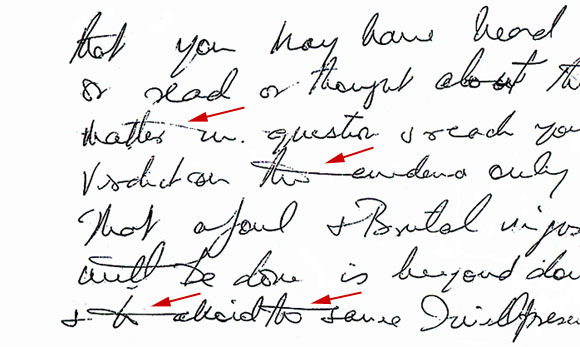 that you may have heard
or read or thought about th
matter in question & reach you
Verdict on this evidence only
That a foul & Brutal injus
will be done is beyond dou
& to avoid the same I will presen